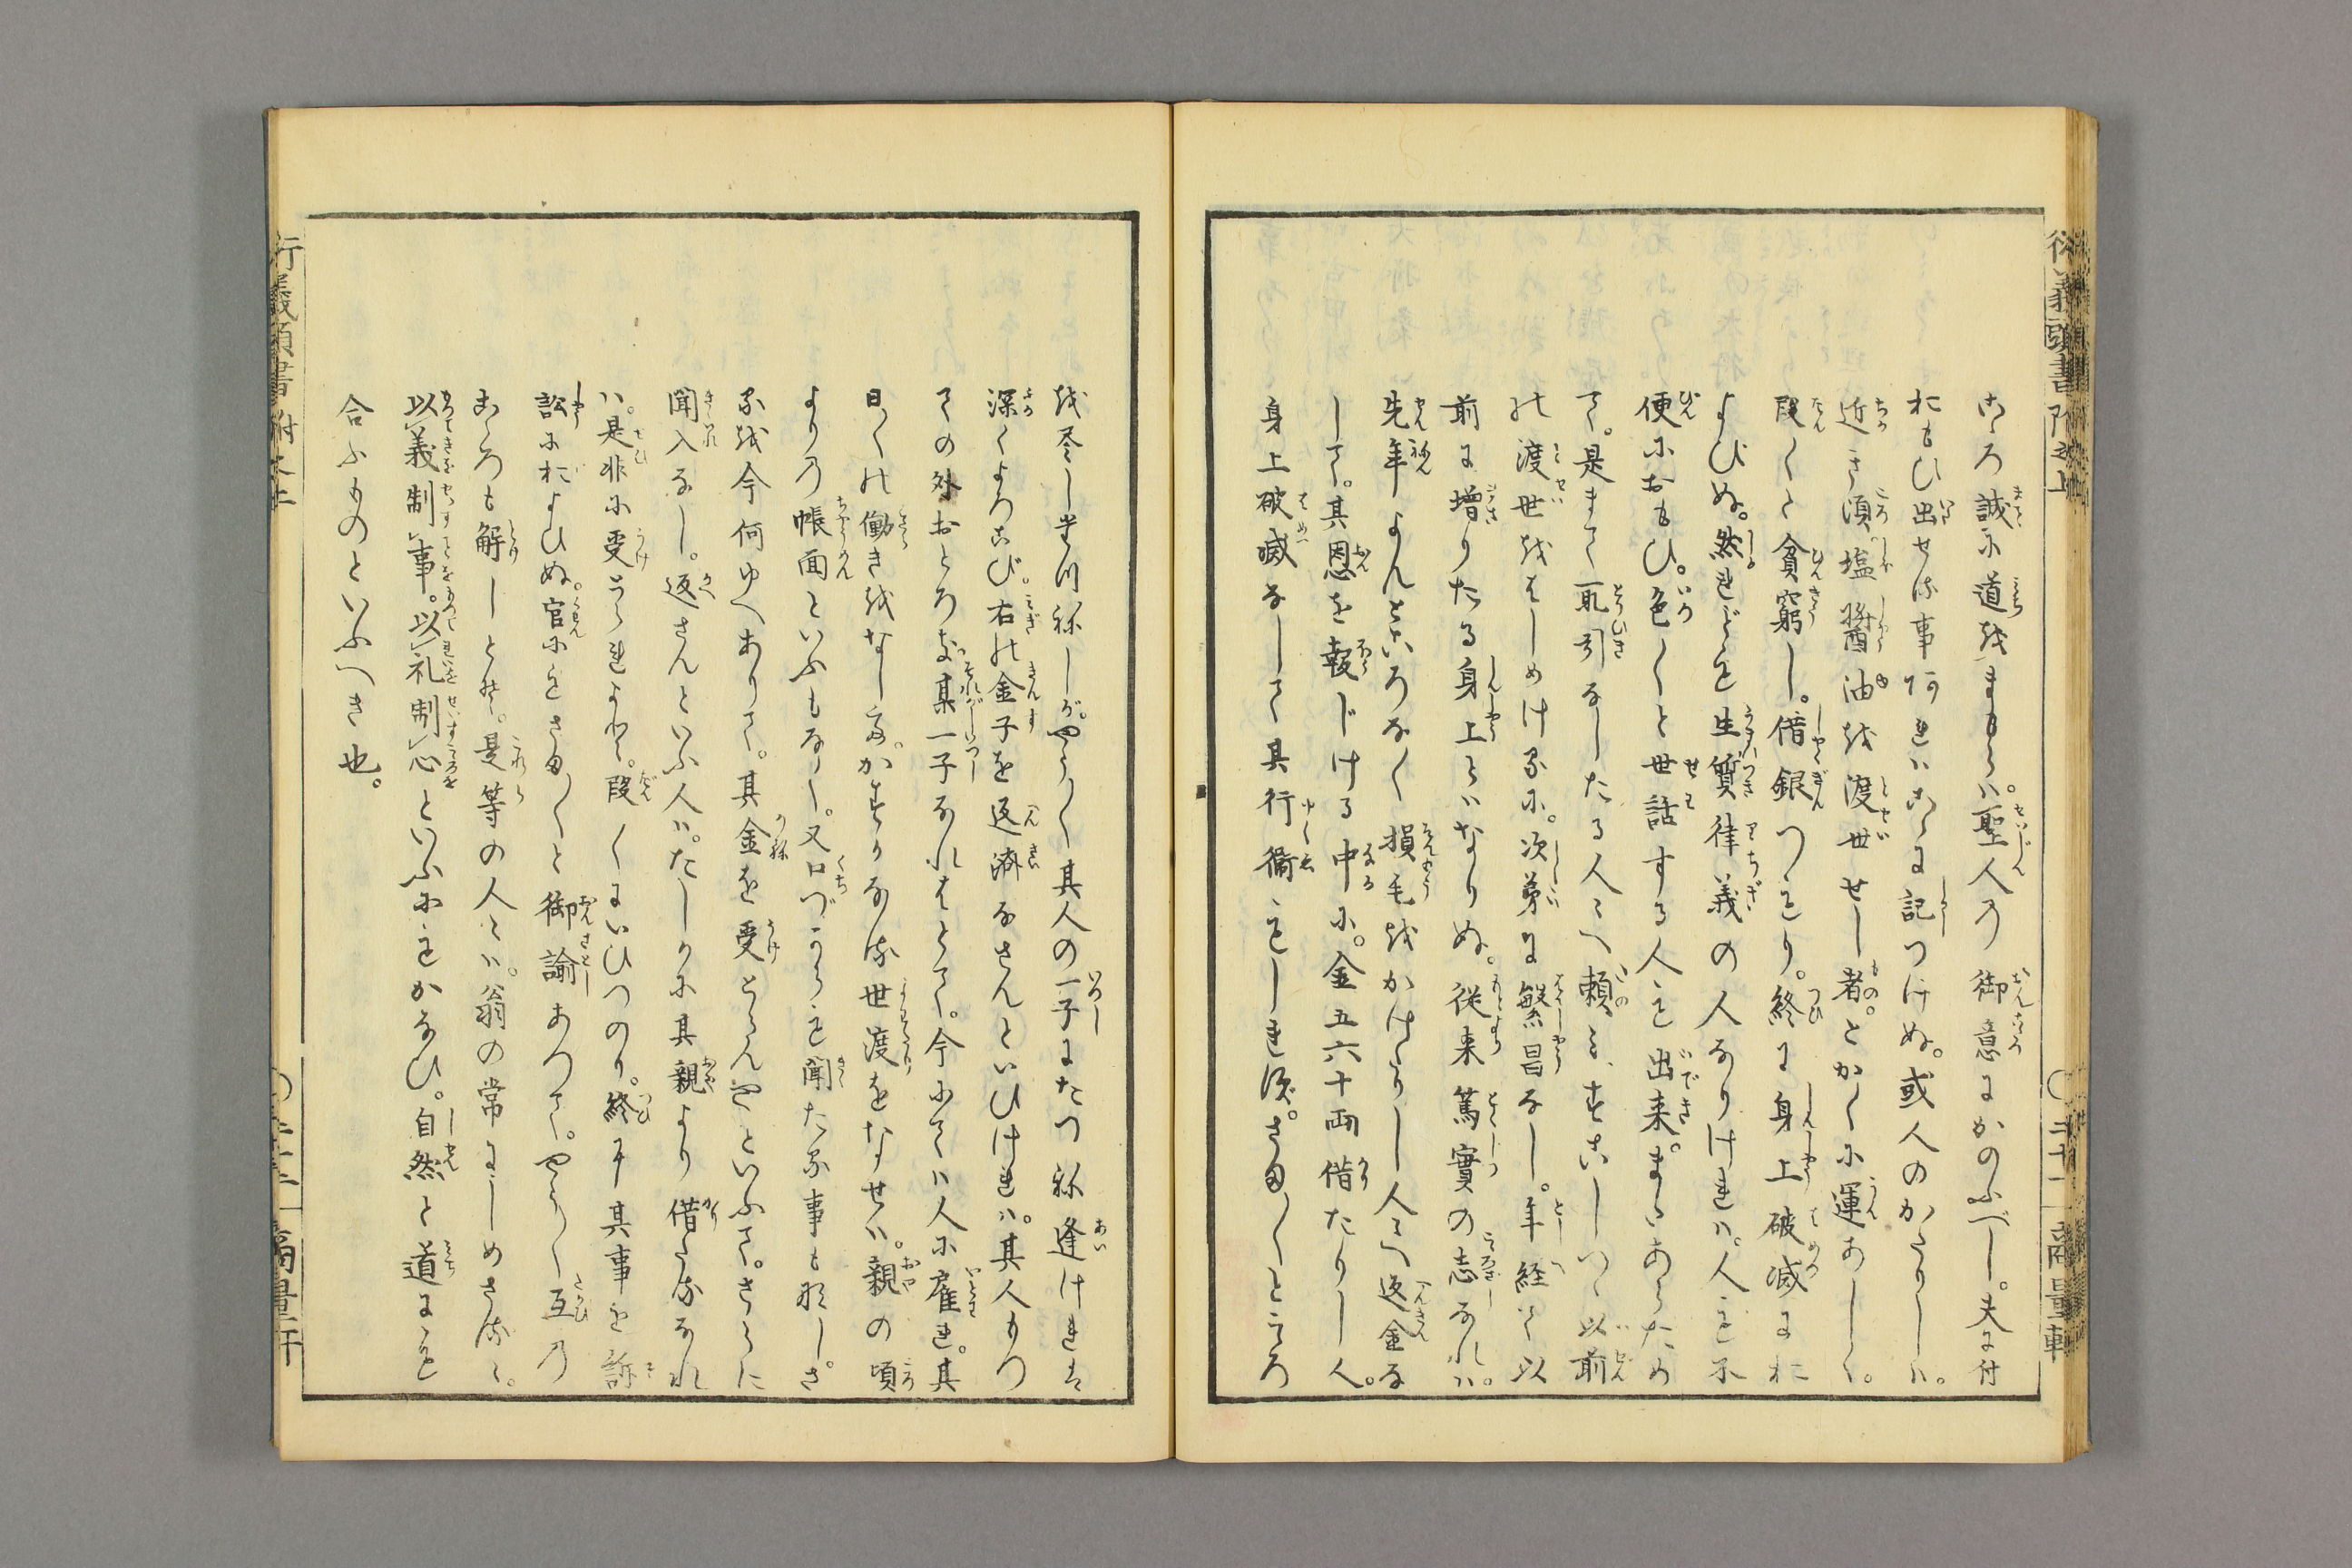 こゝろ誠に道をまもらハ。聖人の御意にかのふべし。夫に付
おもひ出せる事阿れハこゝに記しつけぬ。或人のかたりしハ。
近き頃塩醤油を渡世せし者。とかくに運あしく。
段〱と貧窮し。借銀つもり。終に身上破滅にお
よびぬ。然れども生質律義の人なりけれハ。人も不
便におもひ。色〱と世話する人も出来。またあらため
て。是まて取引なしたる人〻へ頼ミ、すこしつゝ以前
の渡世をはしめけるに。次第に繁昌なし。年経て以
前に増りたる身上とハなりぬ。従来篤實の志なれハ。
先年よんところなく損毛をかけたりし人〻へ返金な
して。其恩を報じける中に。金五六十両借たりし人。
身上破滅なして其行衛もしれず。さま〱とこゝろ
を尽し尋ねしが。やう〱其人の一子にたつね逢けれは
深くよろこび。右の金子を返済なさんといひけれハ。其人もつ
ての外おとろき。某一子なれはとて。今にてハ人に雇れ。其
日〱の働きをなし。かすかなる世渡をなせハ。親の頃
よりの帳面といふもなく。又口づからも聞たる事も那し。さ
るを今何ゆへありて。其金を受とらんやといふて。さらに
聞入なし。返さんといふ人ハ。たしかに其親より借たるなれ
ハ。是非に受とられよと。段〱にいひつのり。終に其事を訴
訟におよひぬ。官にもさま〱と御諭あつて。やう〱互の
こゝろも解しとぞ。是等の人〻ハ。翁の常にしめさるゝ。
以義制事。以礼制心といふにもかなひ。自然と道にも
合ふものといふへき也。
行義頭書 附之上
〇二十一
商量軒